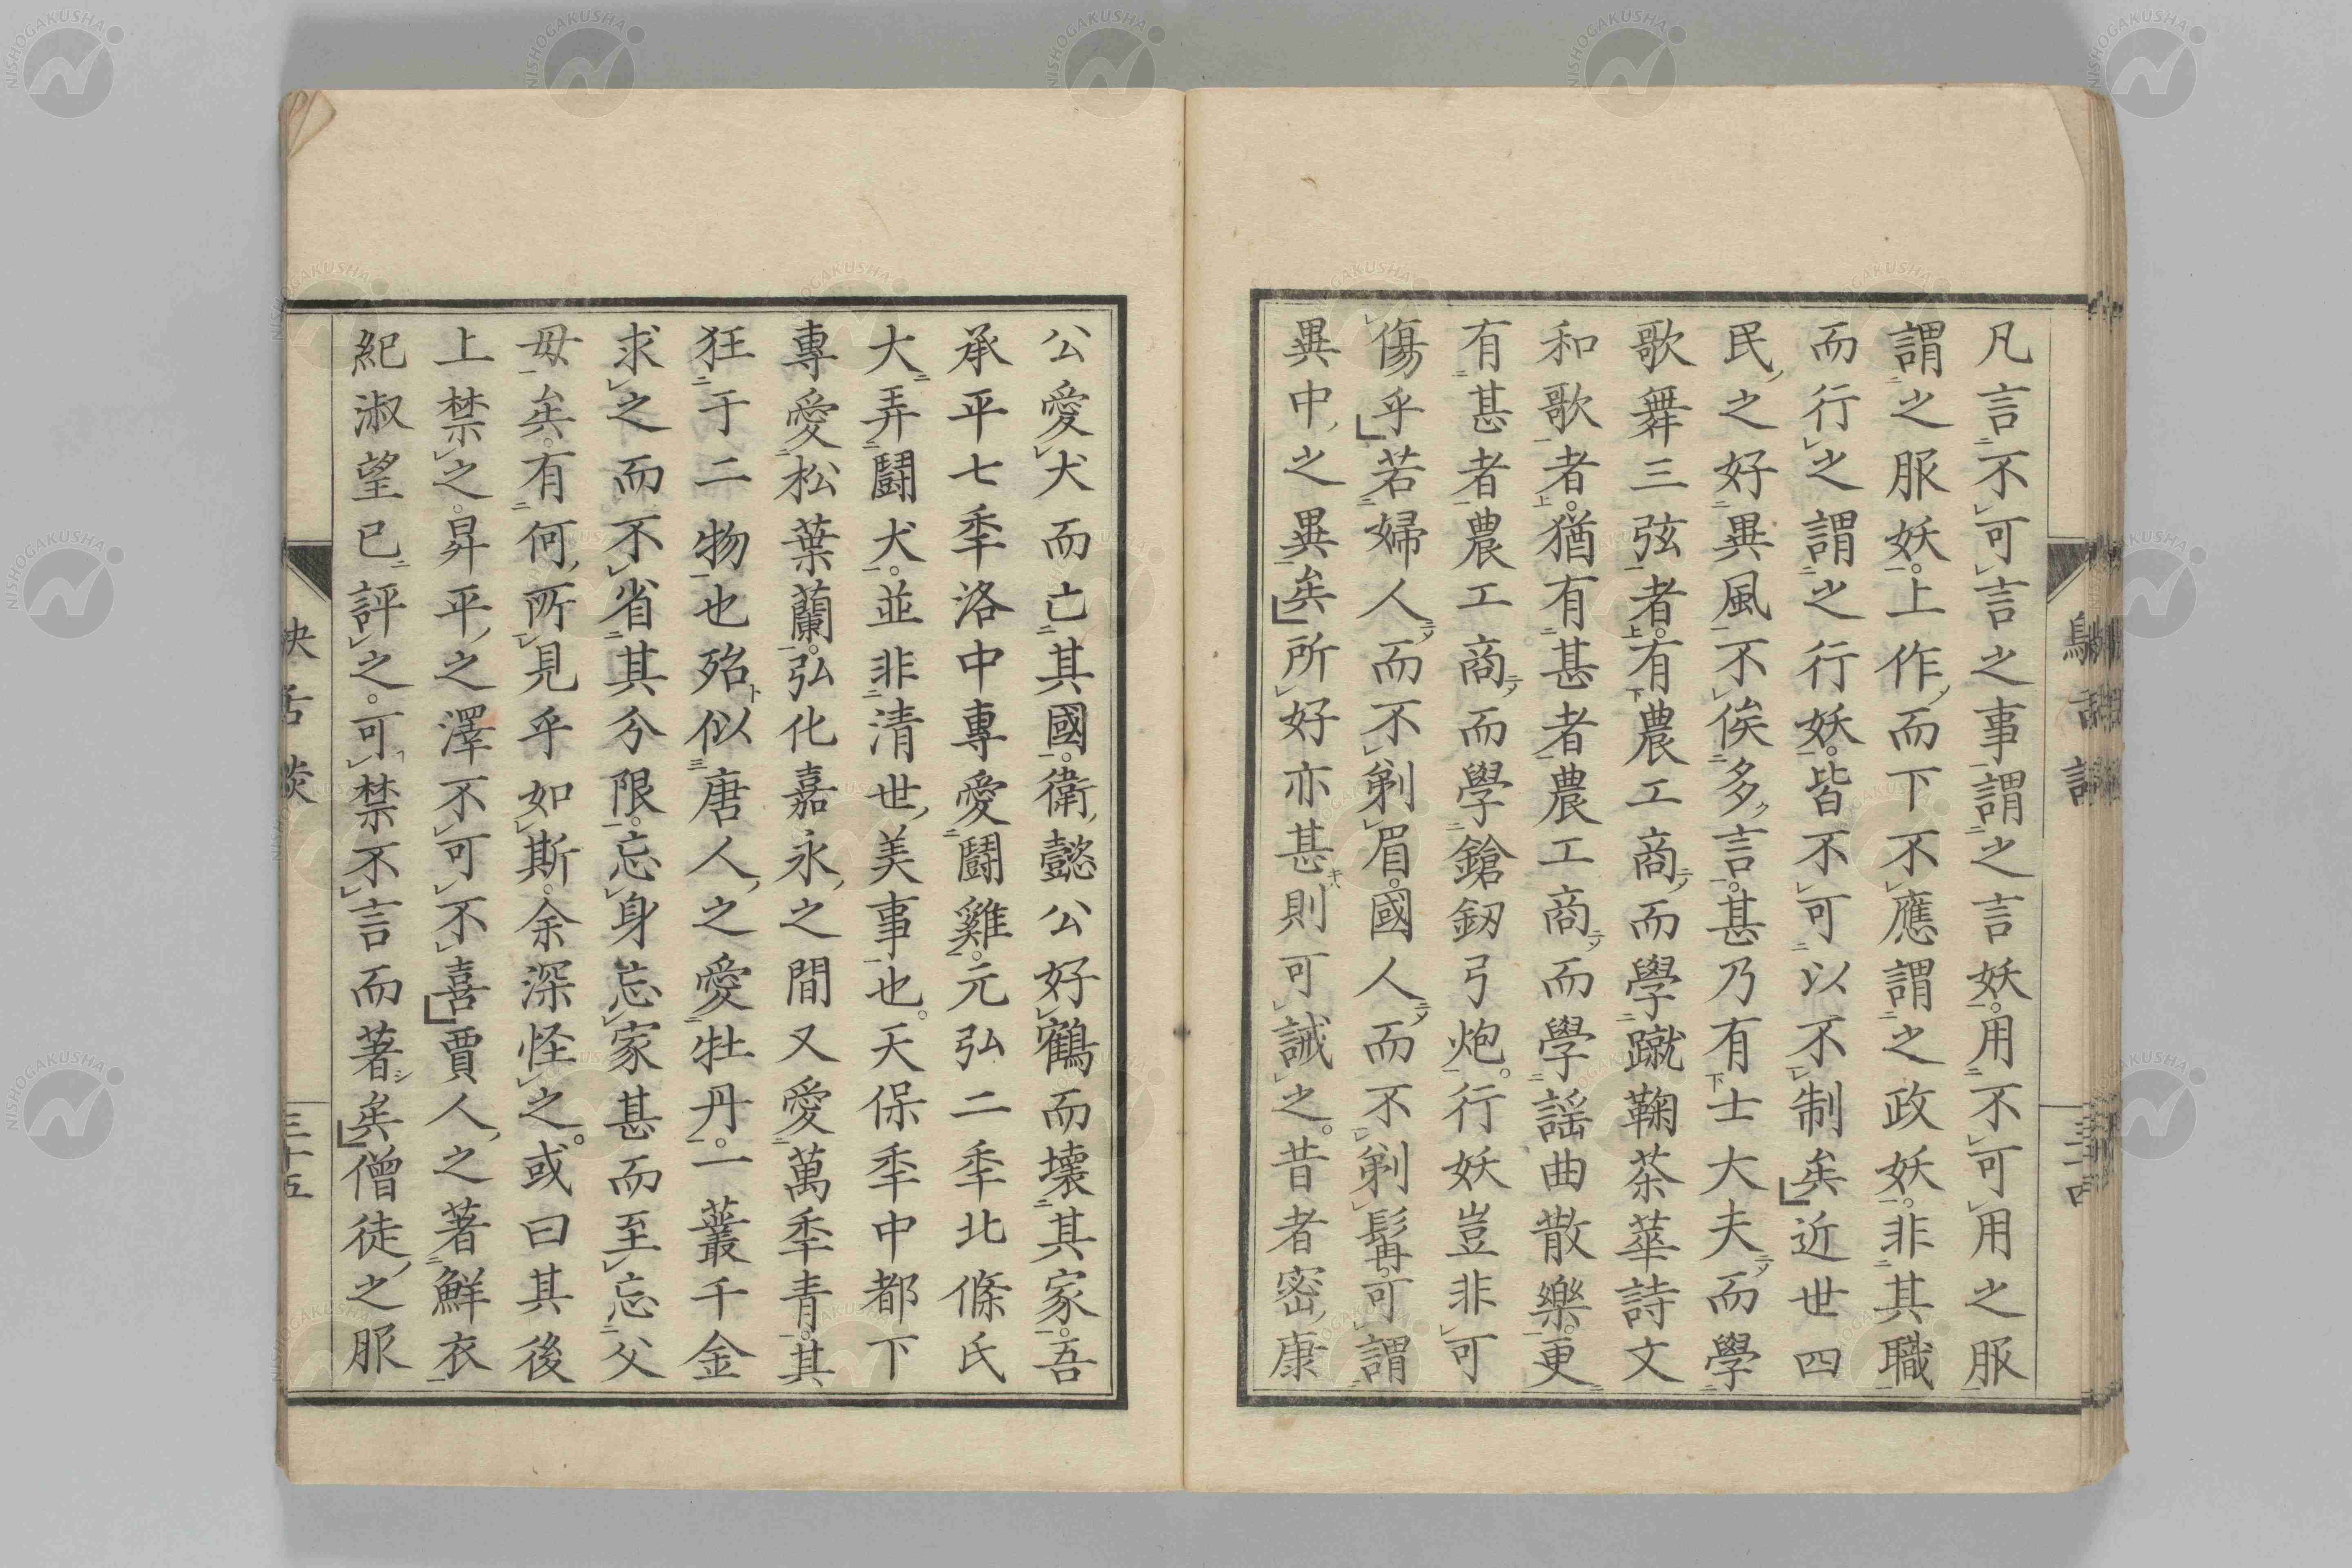 凡言不可言之事謂之言妖。用不可用之服
謂之服妖。上作而下不應謂之政妖。非其職
而行之謂之行妖。皆不可以不制矣」近世四
民之好異風不俟多言。甚乃有士大夫而學
歌舞三弦者。有農工商而學蹴鞠茶莘詩文
和歌者。猶有甚者農工商而學謡曲散樂。更
有甚者農工商而學鎗釼弓炮。行妖豈非可
傷乎」若婦人而不剃眉。國人而不剃髯。可謂
異中之異矣」所好亦甚則可誡之。昔者密康
公愛犬而亡其國。衛懿公好鶴而壊其家。吾
承平七季洛中專愛鬪雞。元弘二季北條氏
大弄鬪犬。並非清世美事也。天保季中都下
專愛松葉蘭。弘化嘉永之間又愛萬季青。其
狂于二物也殆似唐人之愛牡丹。一叢千金
求之而不省其分限。忘身忘家甚而至忘父
母矣。有何所見乎如斯。余深怪之。或曰其後
上禁之。昇平之澤不可不喜」賈人之著鮮衣
紀淑望已評之。可禁不言而著矣」僧徒之服
三十五
NISHOGAKUSHA